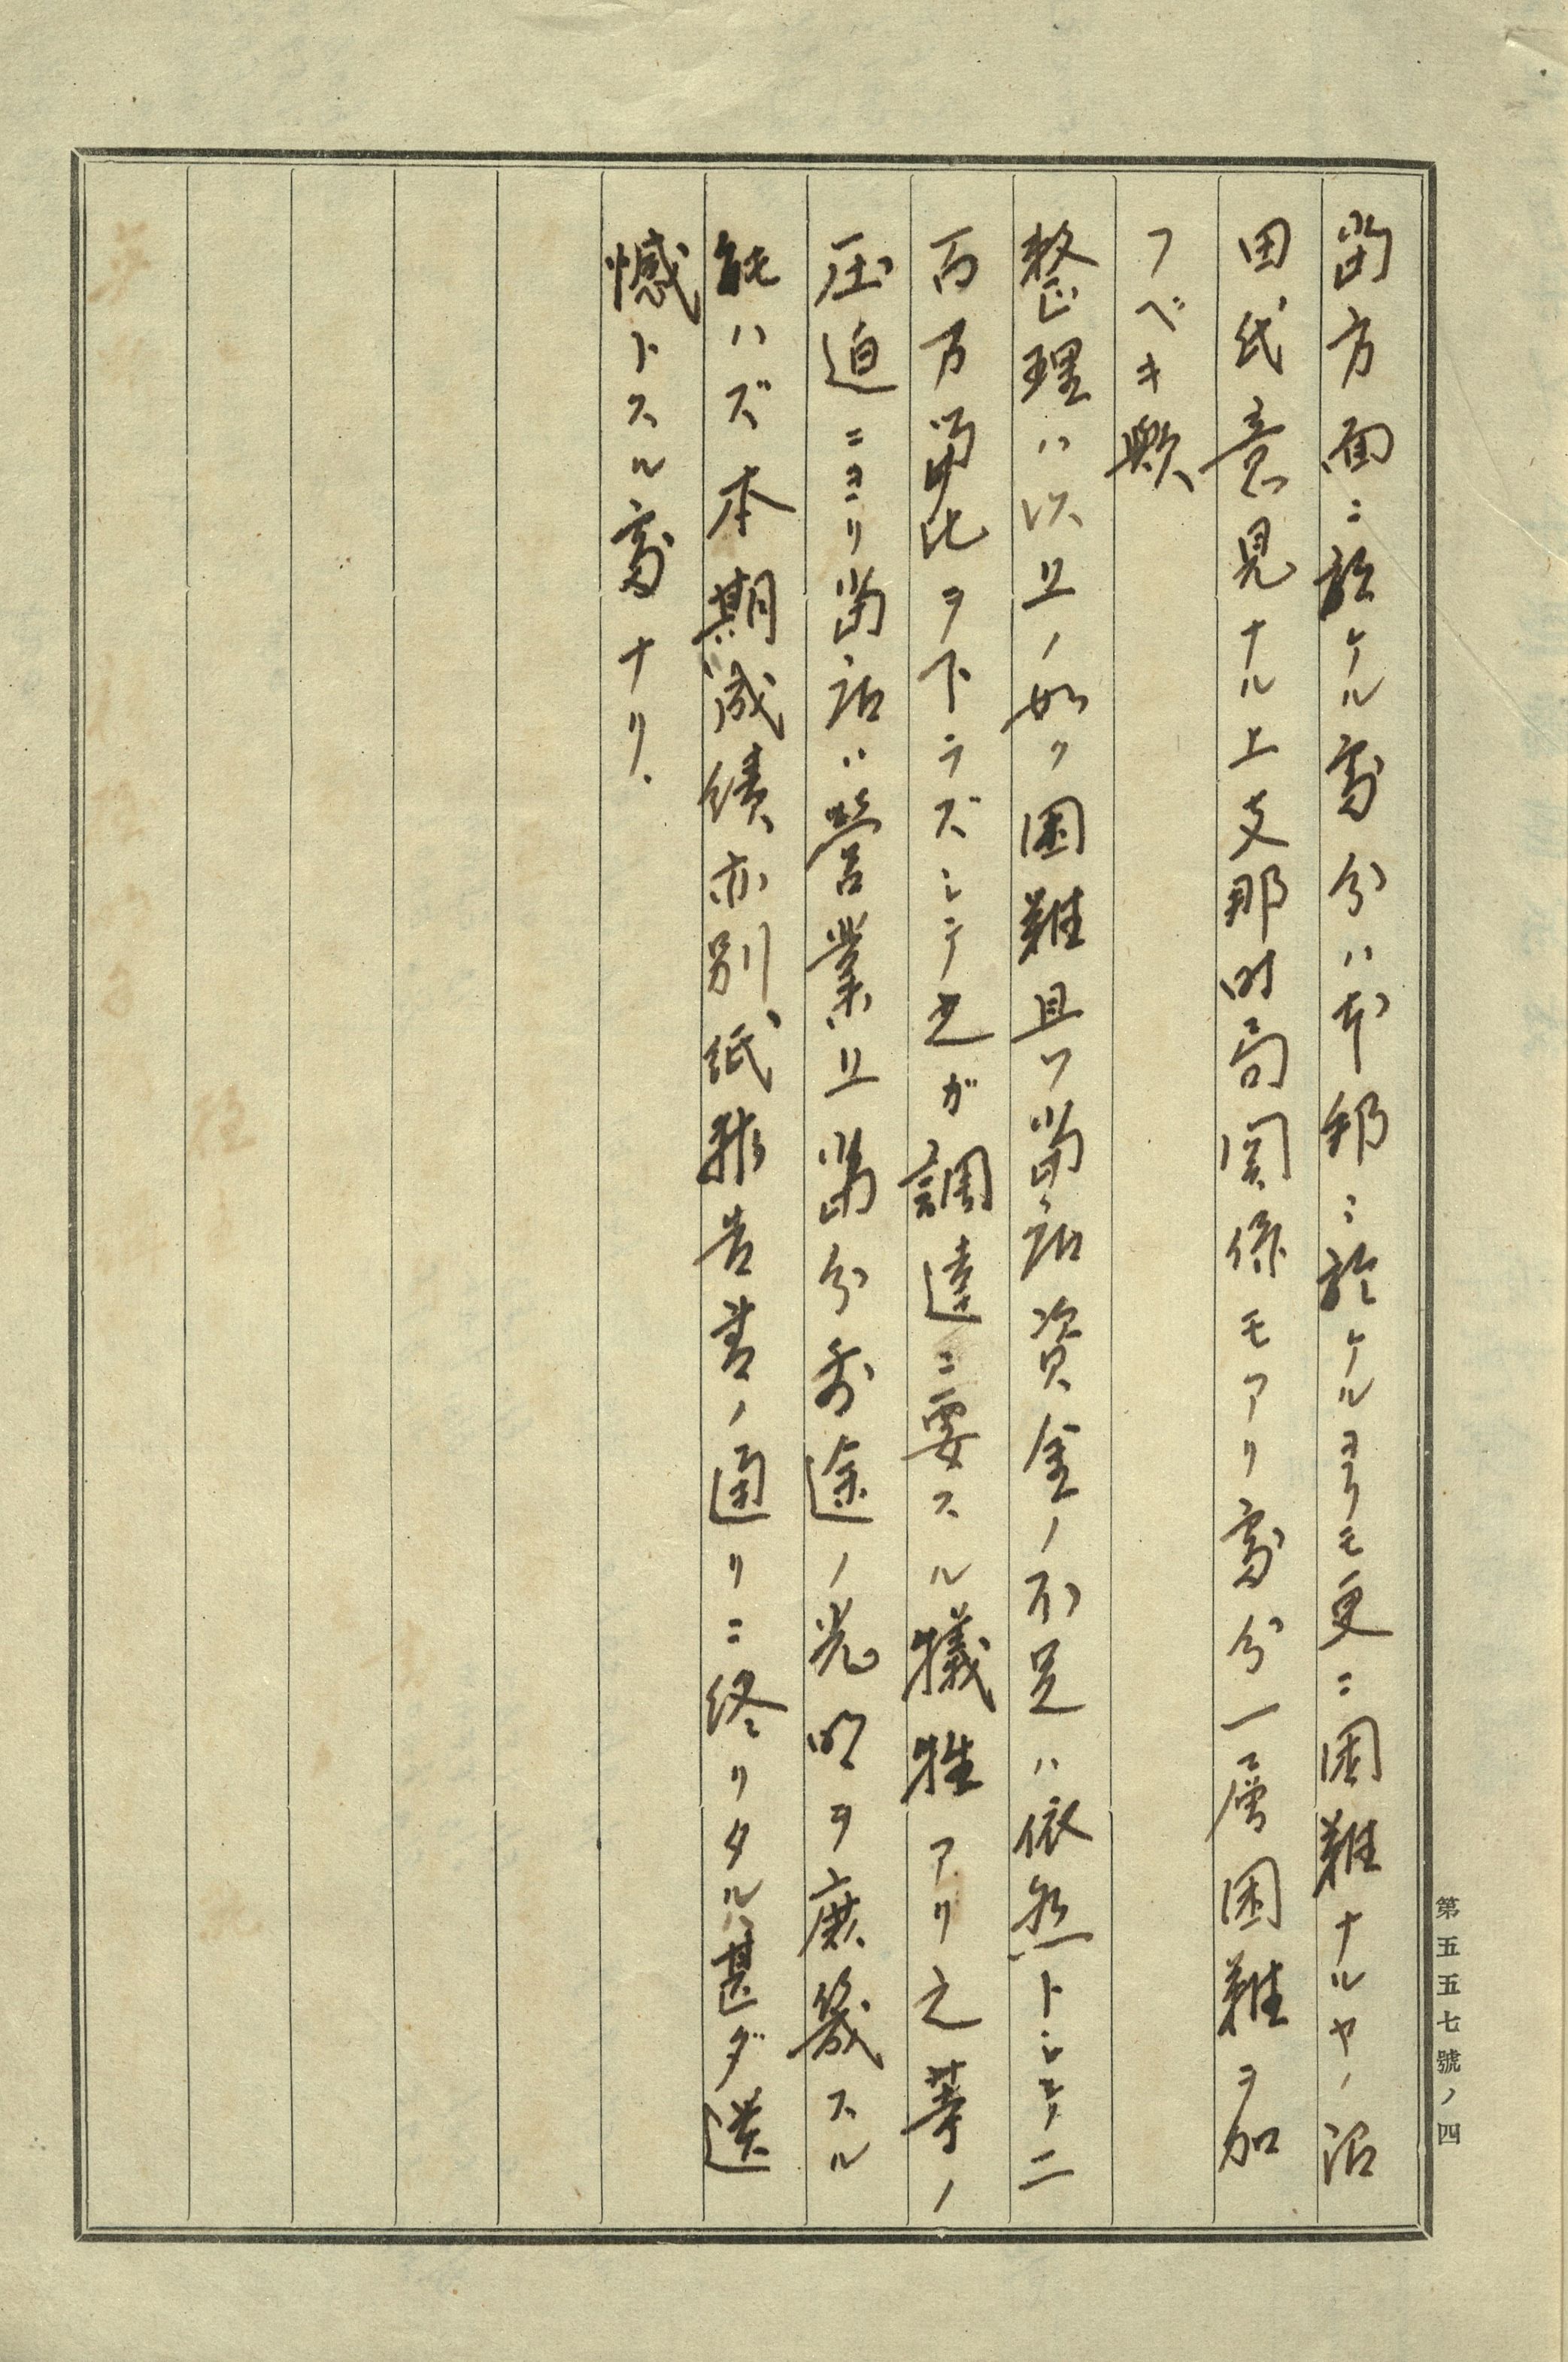 當方面ニ於ケル處分ハ本邦ニ於ケルヨリモ更ニ困難ナルヤノ沼
田氏意見ナル上支那時局関係モアリ處分一層困難ヲ加
フベキ歟
整理ハ以上ノ如ク困難且ツ當店資金ノ不足ハ依然トシテ二
百万留比ヲ下ラズシテ之ガ調達ニ要スル犠牲アリ之等ノ
圧迫ニヨリ當店ハ營業上當分前途ノ光明ヲ庶幾スル
能ハズ本期成績亦別紙報告書ノ通リニ終リタルハ甚ダ遺
憾トスル處ナリ、
第五五七號ノ四